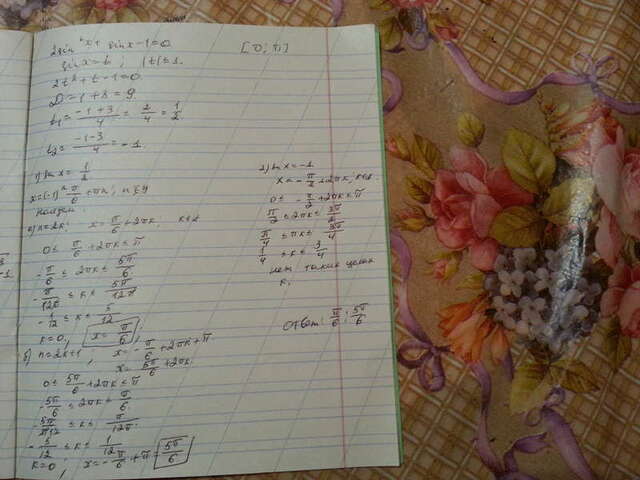 2sin²x + sinx - 1 = 0. [0; π]
sinx = t; |t| ≤ 1.
2t² + t - 1 = 0.
D = 1 + 8 = 9
t₁ = (-1+3)/4 = 2/4 = 1/2
t₂ = (-1-3)/4 = -1.
1) sin x = 1/2
x = (-1)ⁿ π/6 + πn, n∈Z
а) n=2k; x = π/6 + 2πk, k∈Z
0 ≤ π/6 + 2πk ≤ π
-π/6 ≤ 2πk ≤ 5π/6
-π/12π ≤ k ≤ 5π/12π
-1/12 ≤ k ≤ 5/12
k=0, x = π/6;
б) n=2k+1, x = -π/6 + 2πk + π
x = 5π/6 + 2πk.
0 ≤ 5π/6 + 2πk ≤ π
-5π/6 ≤ 2πk ≤ π/6
≤ k ≤ π/12π
-5/12 ≤ k ≤ 1/12
k=0, x = -π/6 + π = 5π/6
2) sin x = -1
x = -π/2 + 2πk, k∈Z
0 ≤ -π/2 + 2πk ≤ π
π/2 ≤ 2πk ≤ 3π/2
π/4 ≤ πk ≤ 3π/4
1/4 ≤ k ≤ 3/4
нет таких целых
k.
Ответ: π/6; 5π/6